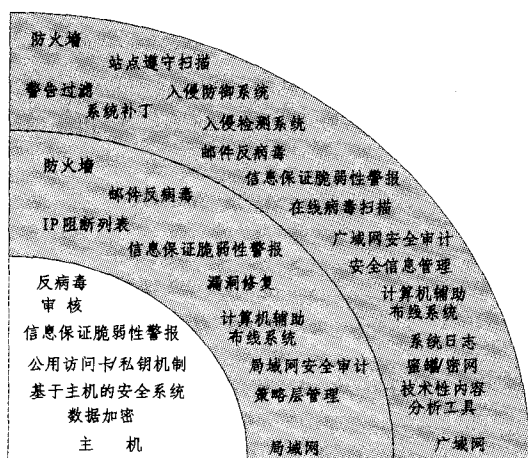 防火墙
站点遵守扫描
警告过滤
入侵防御系统
系统补丁
入侵检测系统
邮件反病毒
信息保证脆弱性警报
在线病毒扫描
广域网安全审计
安全信息管理
计算机辅助
布线系统
系统日志
蜜罐/密网
技术性内容
分析工具
广域网
防火墙
邮件反病毒
IP阻断列表
信息保证脆弱性警报
漏洞修复
计算机辅助
布线系统
局域网安全审计
策略层管理
局域网
反病毒
审核
信息保证脆弱性警报
公用访问卡/私钥机制
基于主机的安全系统
数据加密
主 机